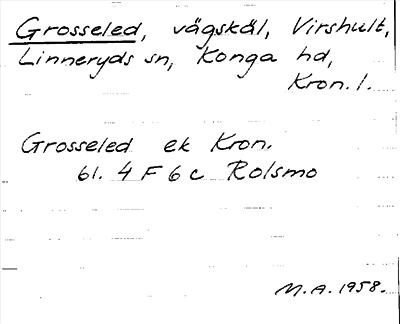 Grosseled, vägskäl, Virshult,
Linneryds sn, Konga hd,
Kron. l.
Grosseled ek Kron.
bl. 4 F 6 c Rolsmo
M.A. 1958.